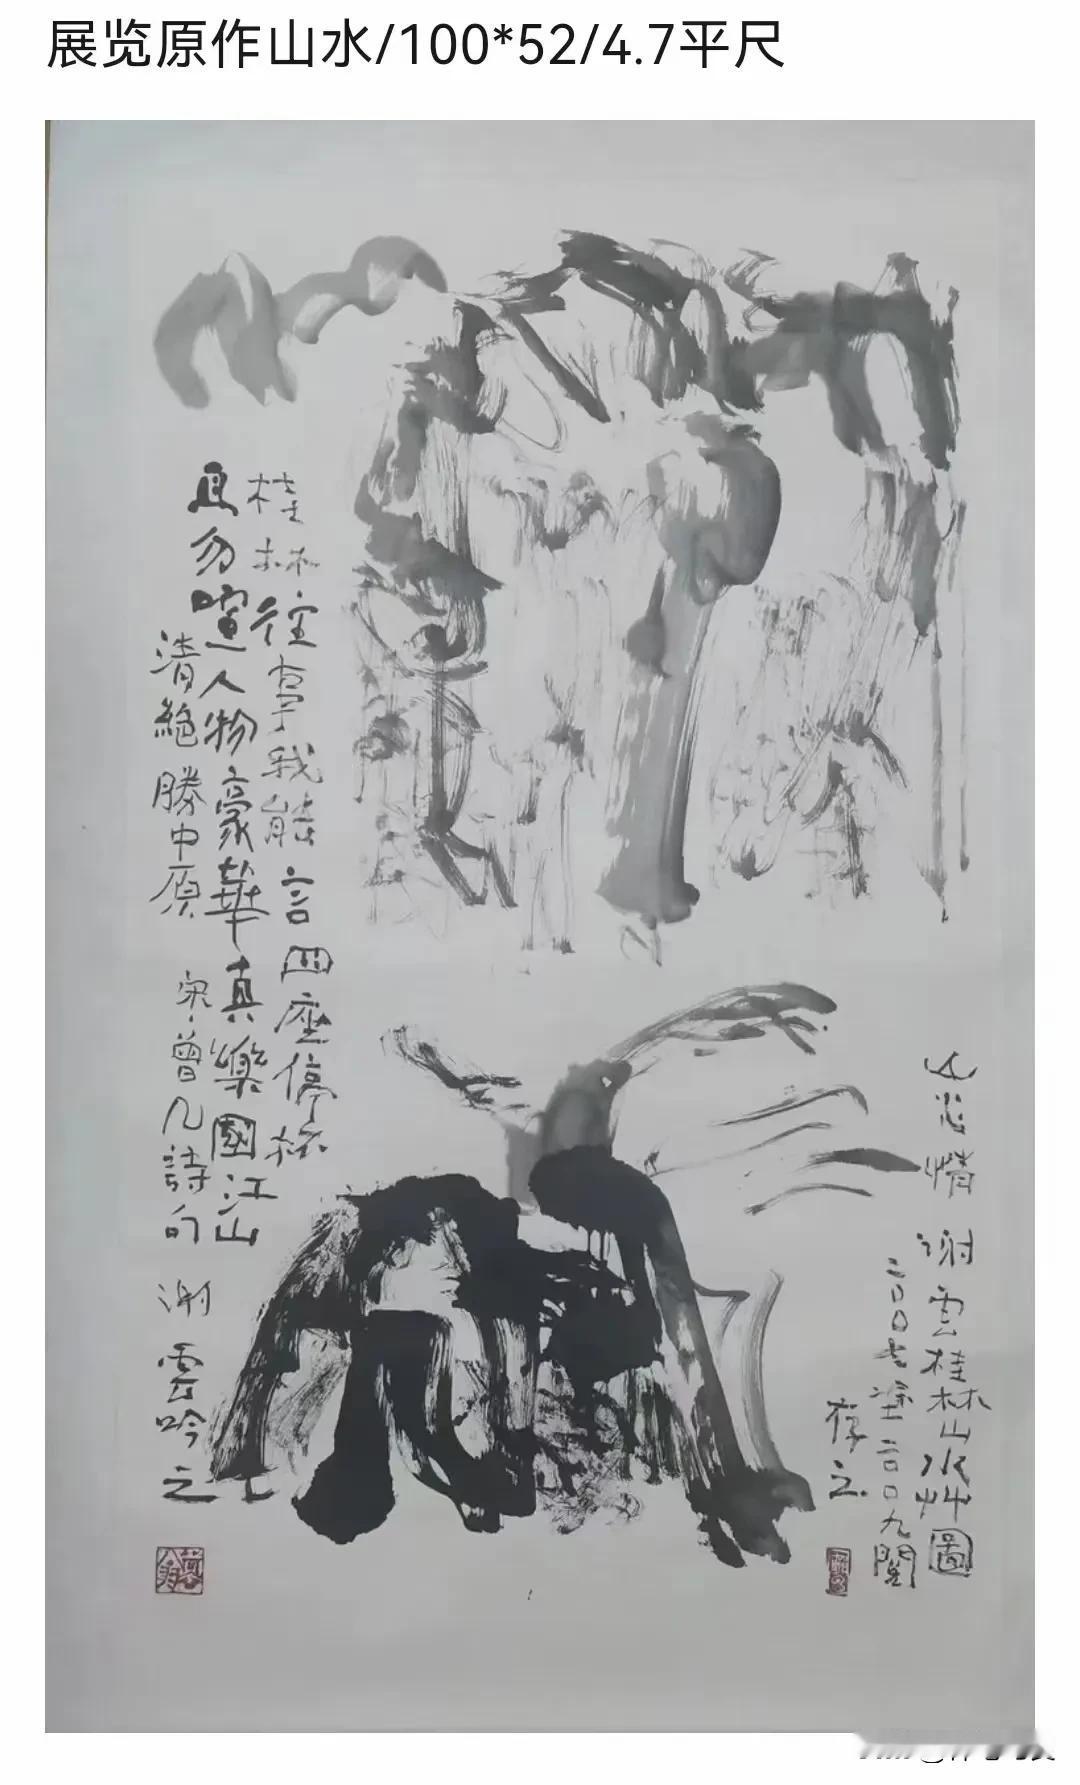 展览原作山水/100*52/4.7平尺
山水情 谢云桂林山水草圖
二〇〇七塗二〇〇九閣
存之
桂林往事我能言四座停杯
且勿喧人物豪華真樂國江山
清絕勝中原 宋曾几詩句 谢雲吟之